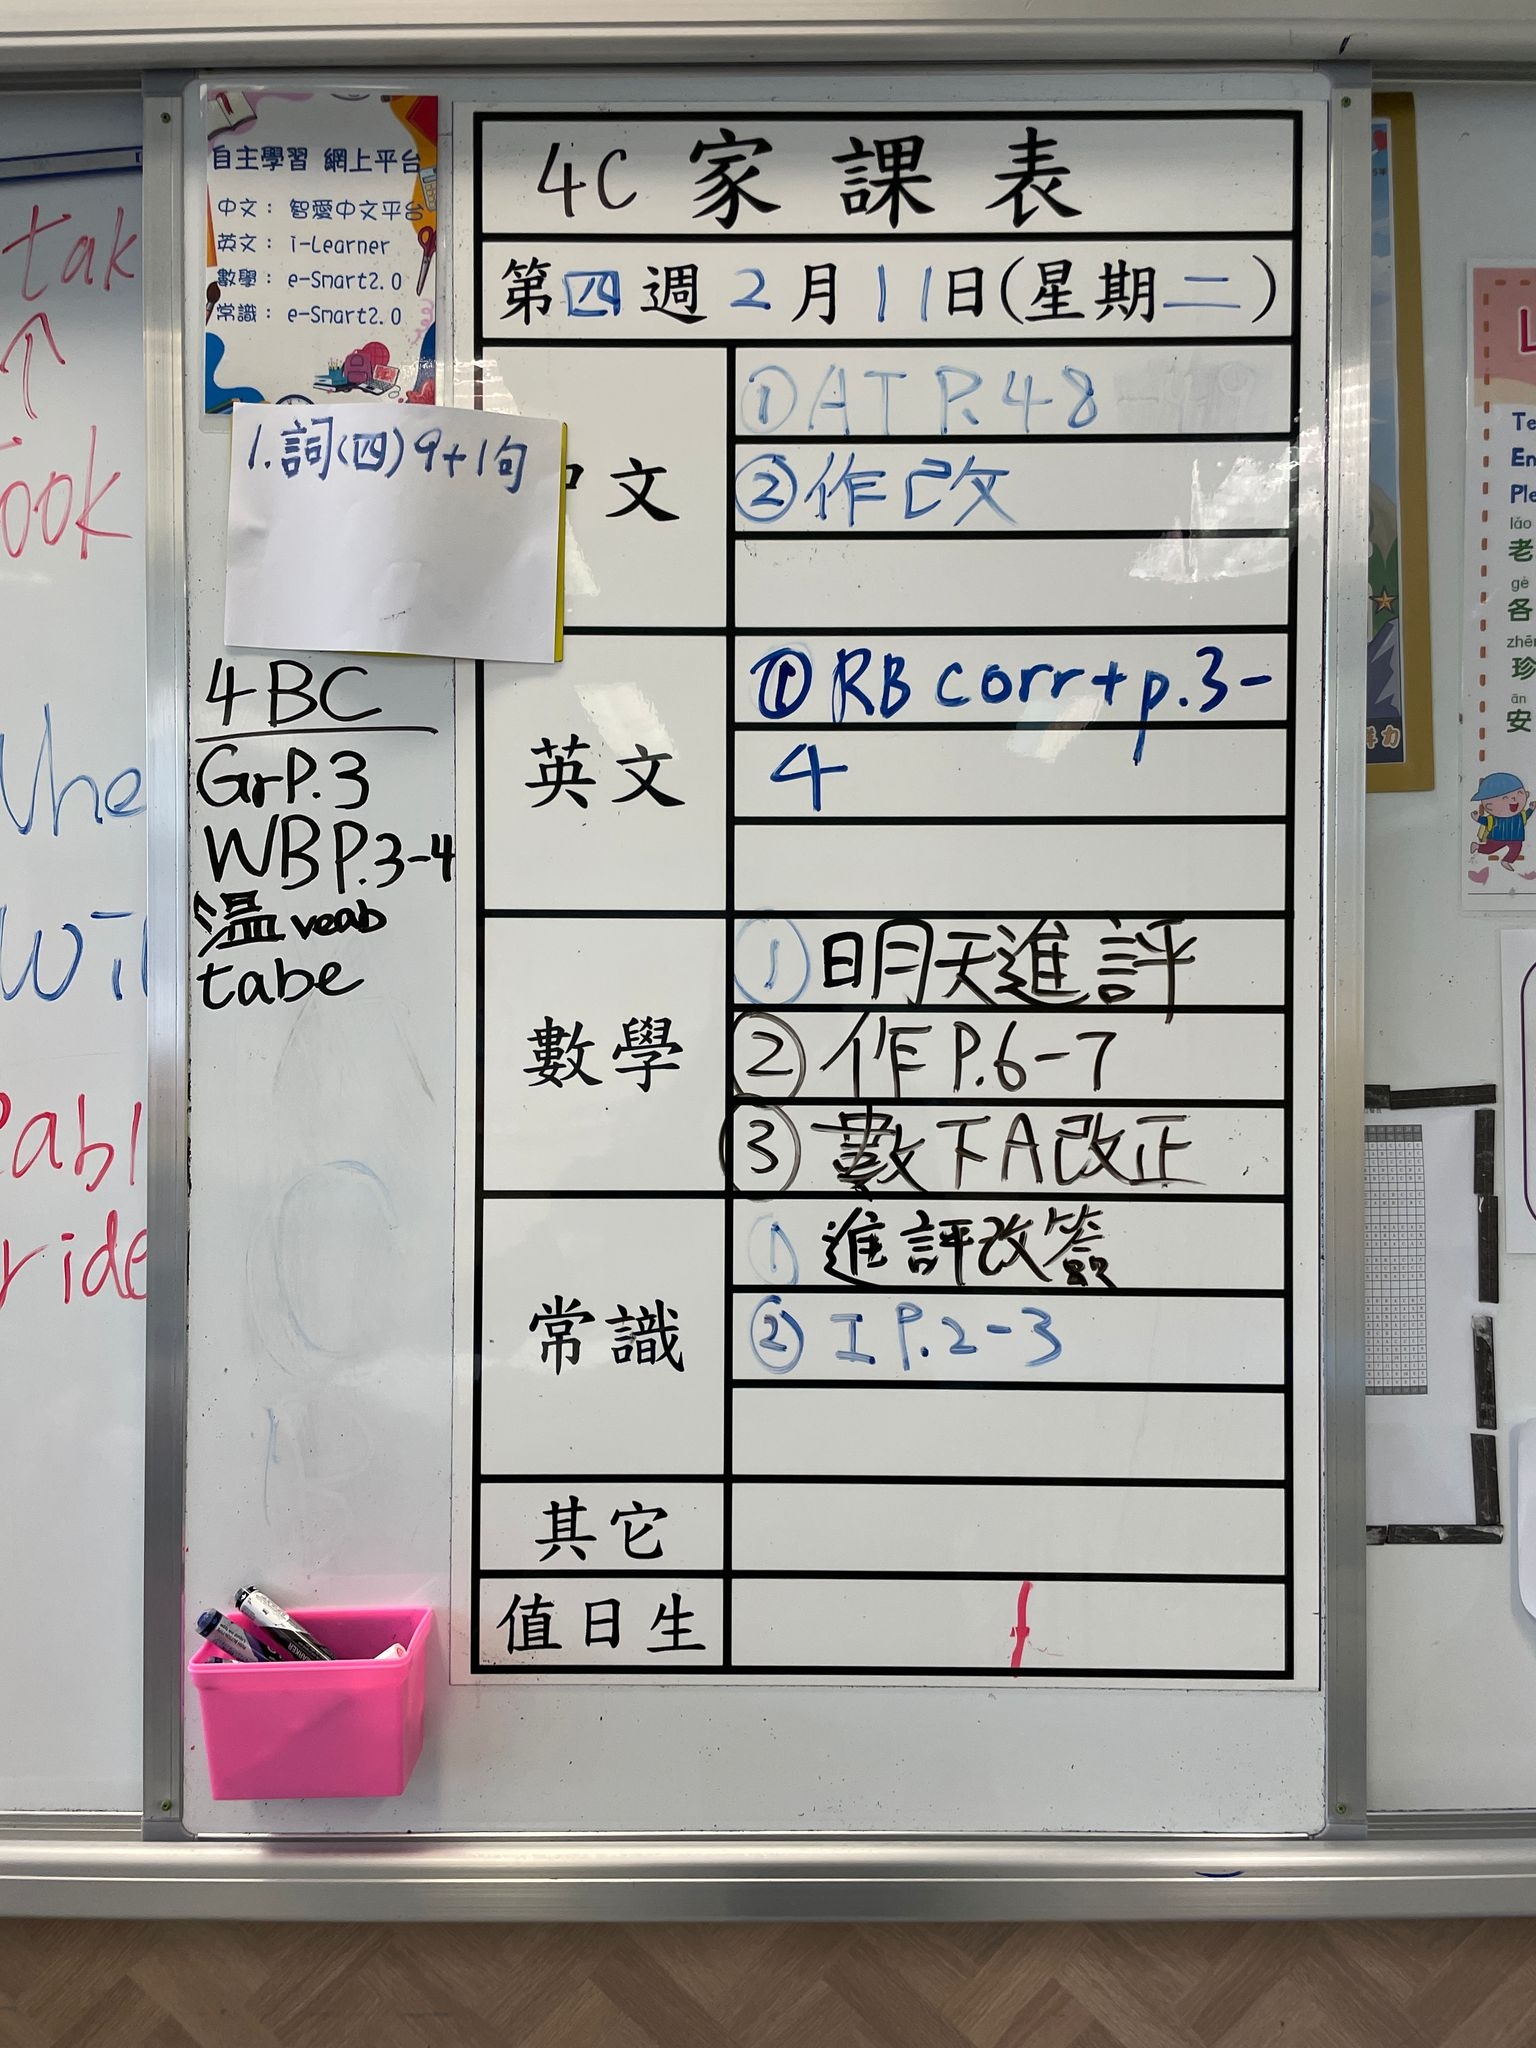 自主學習 網上平台
中文： 智愛中文平台
英文： i-Learner
數學： e-Smart2.0
常識： e-Smart2.0
1.詞(四)9+1句
4BC
GrP.3
WBP.3-4
溫 veab
tabe
4C 家課表
第四週2月11日(星期二)
中文
①AT P.48
②作改
英文
①RB corr+p.3-
4
數學
①明天進評
②作P.6-7
③數下A改正
常識
①進評改簽
②I P.2-3
其它
值日生
tak
↑
ook
whe
wil
eabl
ride
Te
En
Ple
lǎo
老
gè
各
zhēn
珍
ān
安